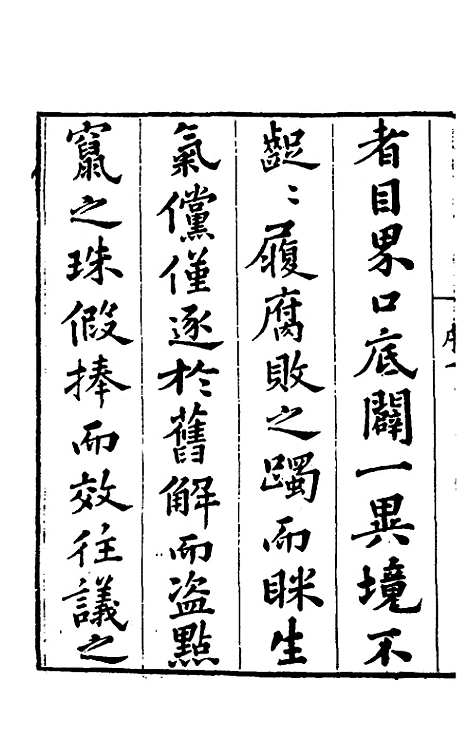 者目界口底闢一異境不
齪〻履腐敗之躅而眯生
氣儻僅逐於舊解而盜點
竄之珠假捧而效往議之